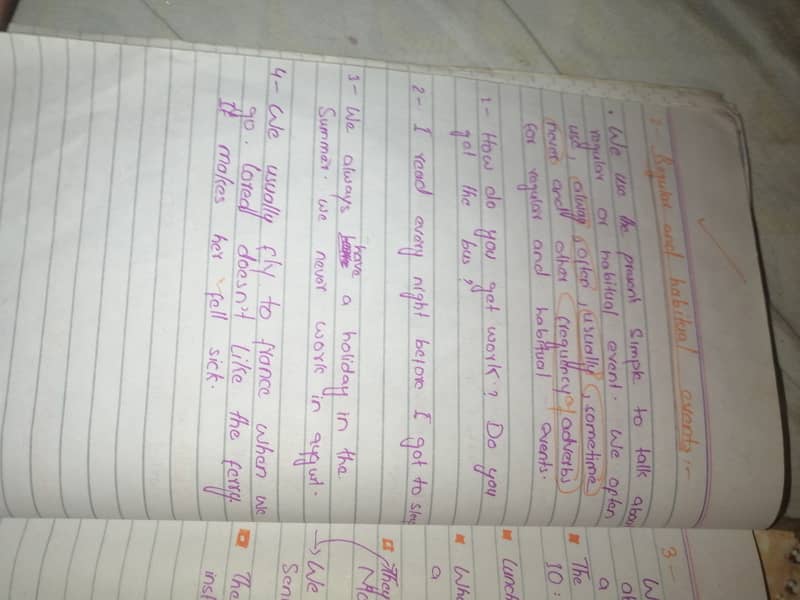 2- Regular and habitual events:-
• We use the present Simple to talk about
regular or habitual event. We often
use, always, often, usually, sometime
never and other frequency of adverbs
for regular and habitual events.
1- How do you get work? Do you
got the bus?
2- I read every night before I got to
3- We always have a holiday in the
Summer. We never work in
4- We usually fly to france when we
go. lored doesn't like the ferry.
It makes her fell sick.
3-
W
The
10:
Lunch
a
They
→ We
The